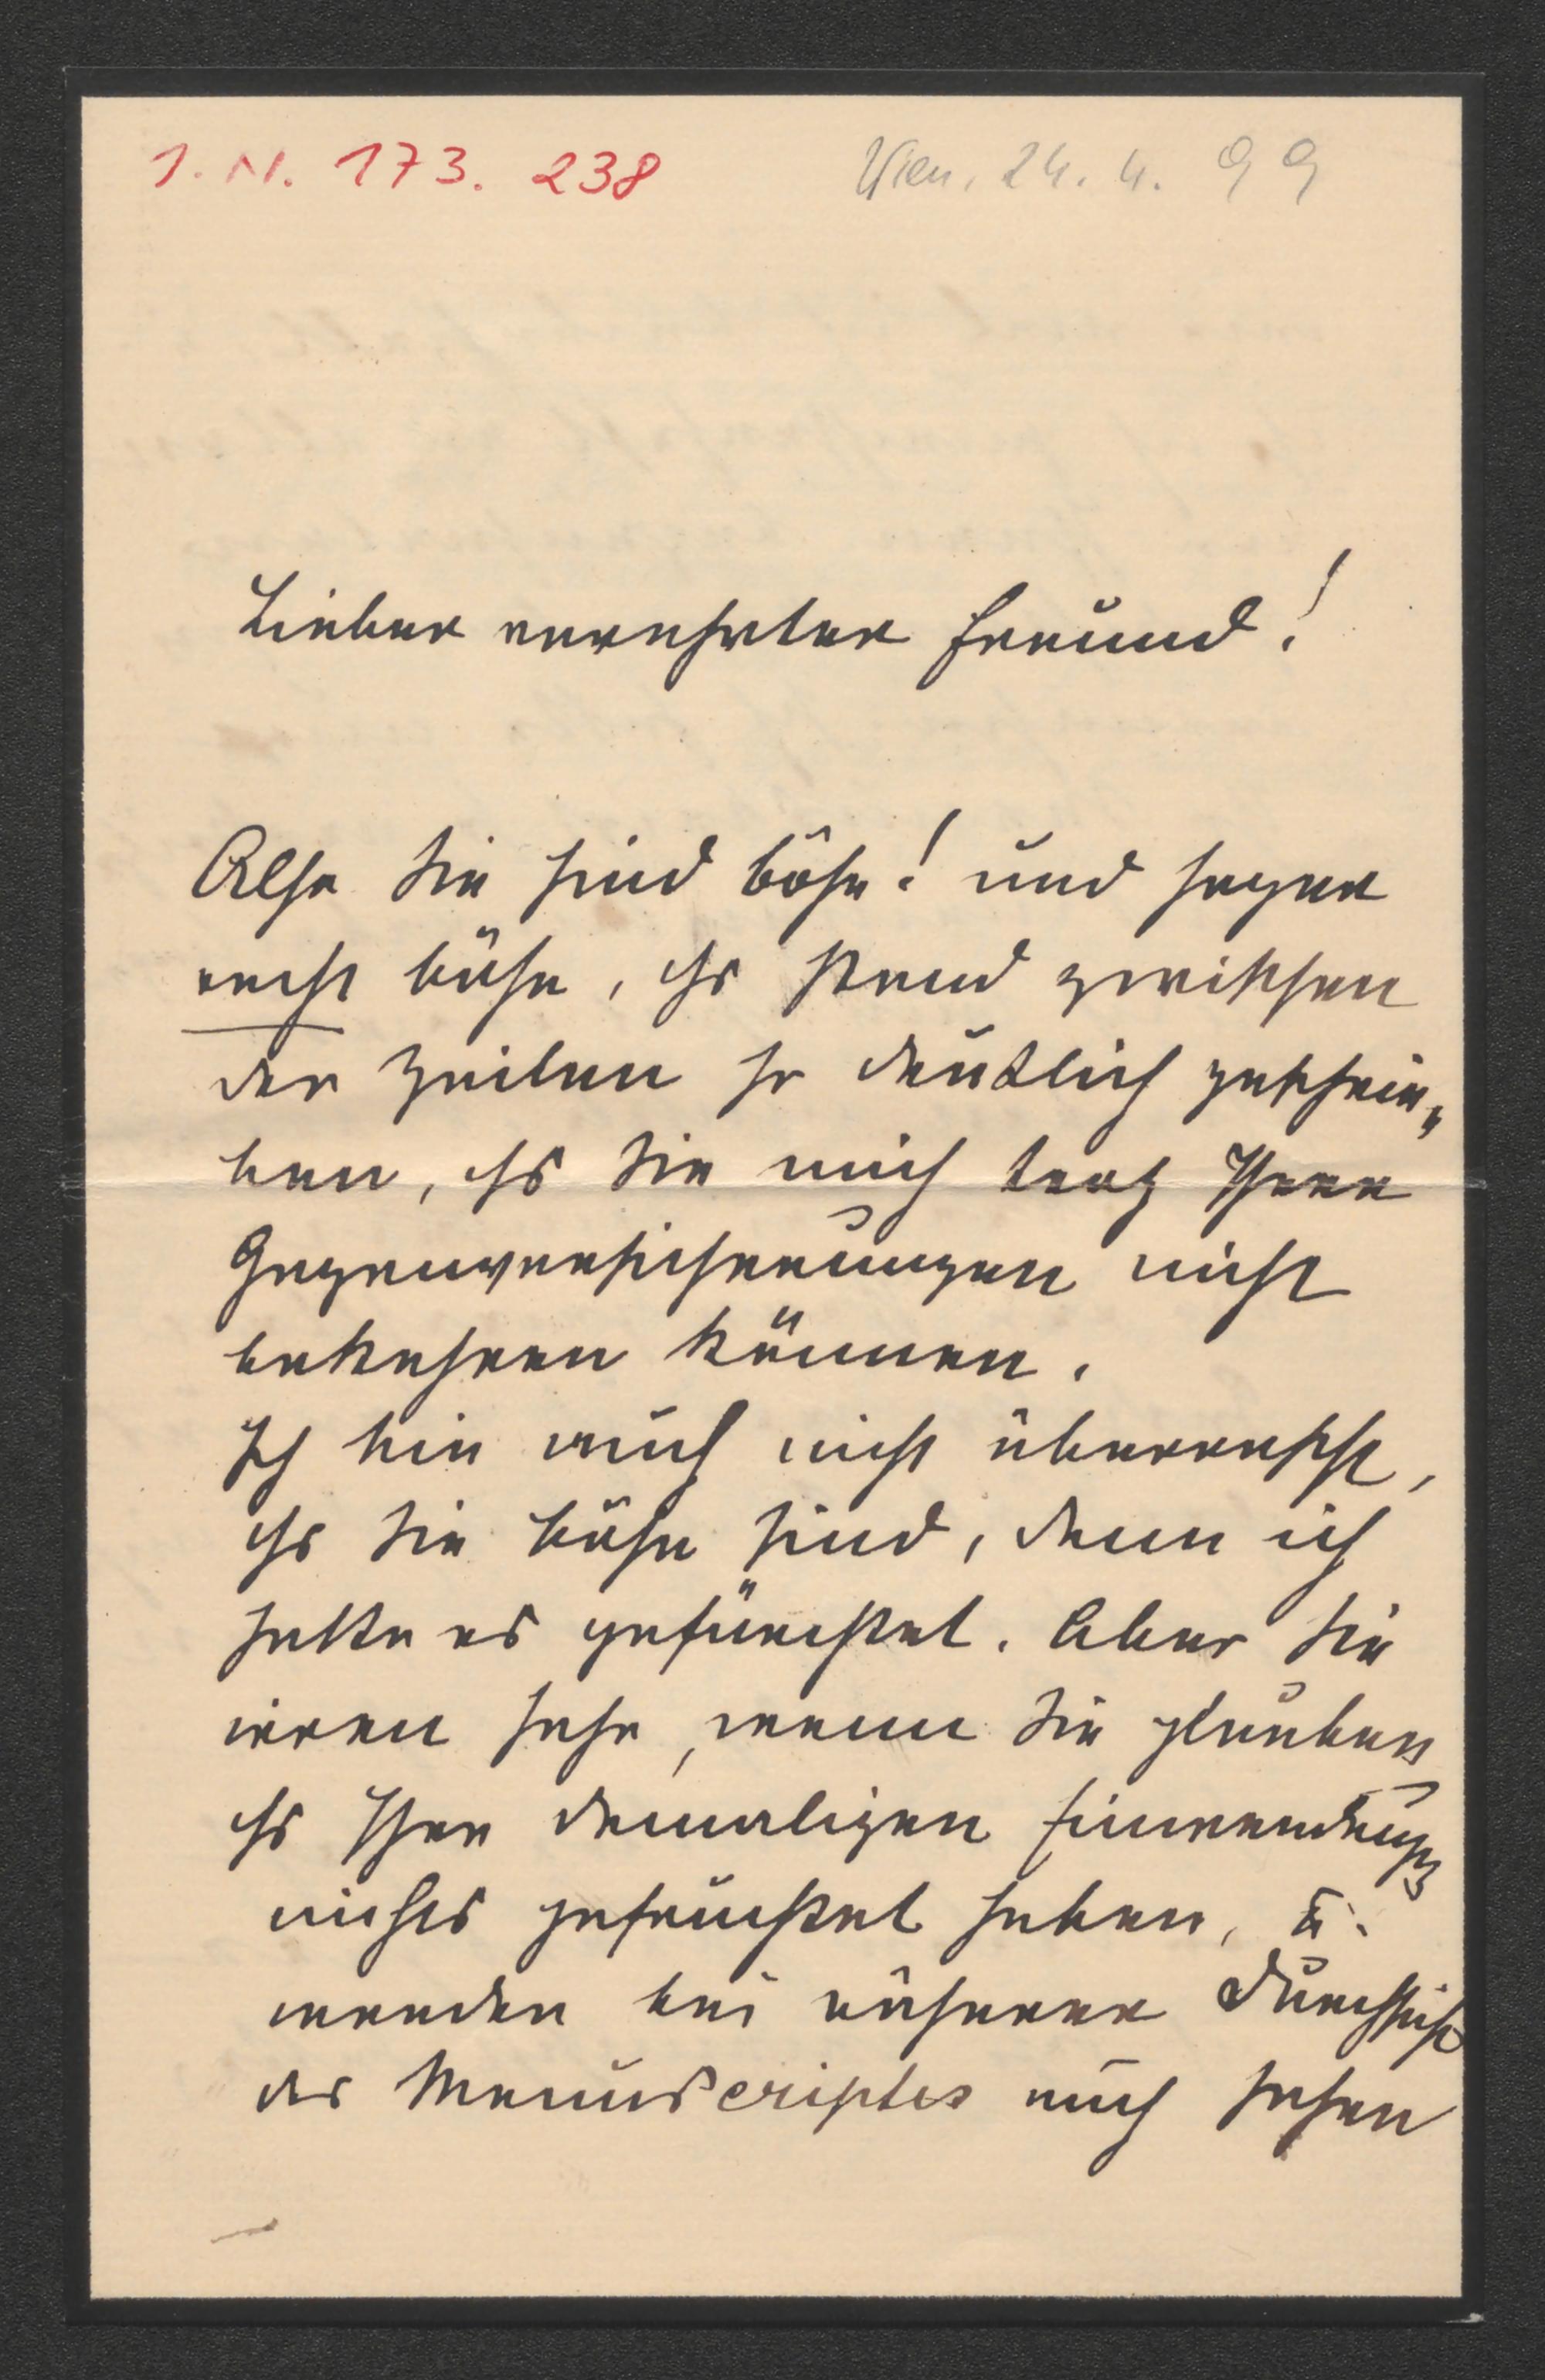 I. N. 173. 238
Wien, 24. 4. 99
Lieber verehrter Freund!
Also Sie sind böse! und sogar
recht böse, es stand zwischen
den Zeilen so deutlich geschrie„
ben, dß Sie mich trotz Ihrer
Gegenversicherungen nicht
bekehren können.
Ich bin auch nicht überrascht,
dß Sie böse sind, denn ich
hatte es gefürchtet. Aber Sie
irren sehr, wenn Sie glauben
dß Ihre damaligen Einwendungen
nichts gefruchtet haben, u.
werden bei näherer Durchsicht
des Manuscriptes auch sehen